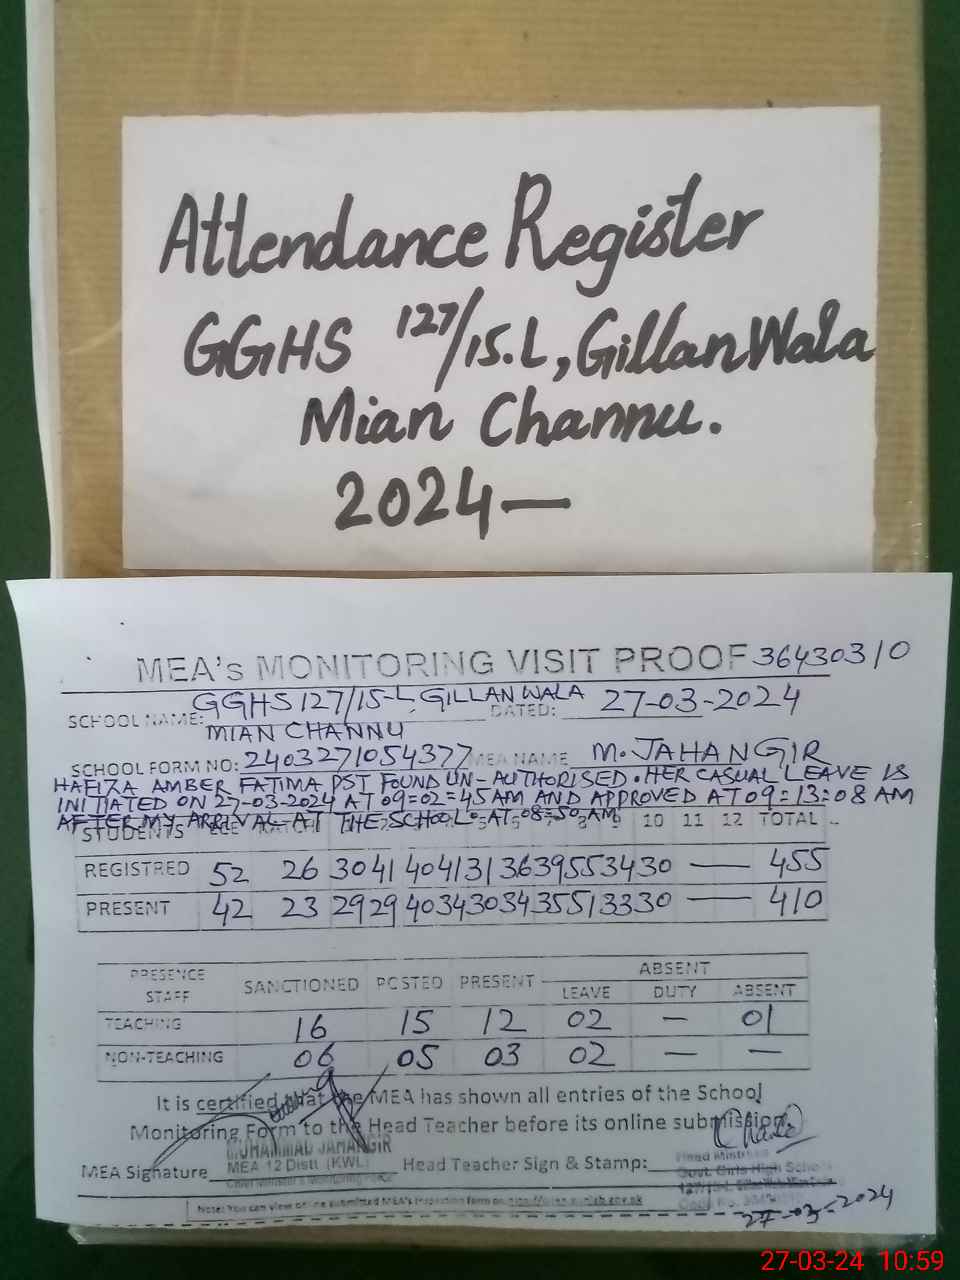 Attendance Register
GGHS 127/15.L, GillanWala
Mian Channu.
2024—
MEA's MONITORING VISIT PROOF 36430310
SCHOOL NAME: GGHS 127/15-L, GILLAN WALA DATED: 27-03-2024
MIAN CHANNU
SCHOOL FORM NO: 2403271054377 MEA NAME M. JAHANGIR
HAFIZA AMBER FATIMA PST FOUND UN-AUTHORISED. HER CASUAL LEAVE IS
INITIATED ON 27-03-2024 AT 09=02=45 AM AND APPROVED AT 09:13:08 AM
AFTER MY ARRIVAL AT THE SCHOOL AT 08:50 AM
STUDENTS 10 11 12 TOTAL
REGISTRED 52 26 30 41 40 41 31 36 39 55 34 30 — 455
PRESENT 42 23 29 29 40 34 30 34 35 51 33 30 — 410
PRESENCE STAFF SANCTIONED POSTED PRESENT ABSENT
LEAVE DUTY ABSENT
TEACHING 16 15 12 02 — 01
NON-TEACHING 06 05 03 02 — —
It is certified that the MEA has shown all entries of the School
Monitoring Form to the Head Teacher before its online submission.
MUHAMMAD JAHANGIR
MEA Signature MEA-12 Distt. (KWL) Head Teacher Sign & Stamp:
Govt. Girls High School
Note: You can view online submitted MEA's inspection form on
27-03-2024
27-03-24 10:59